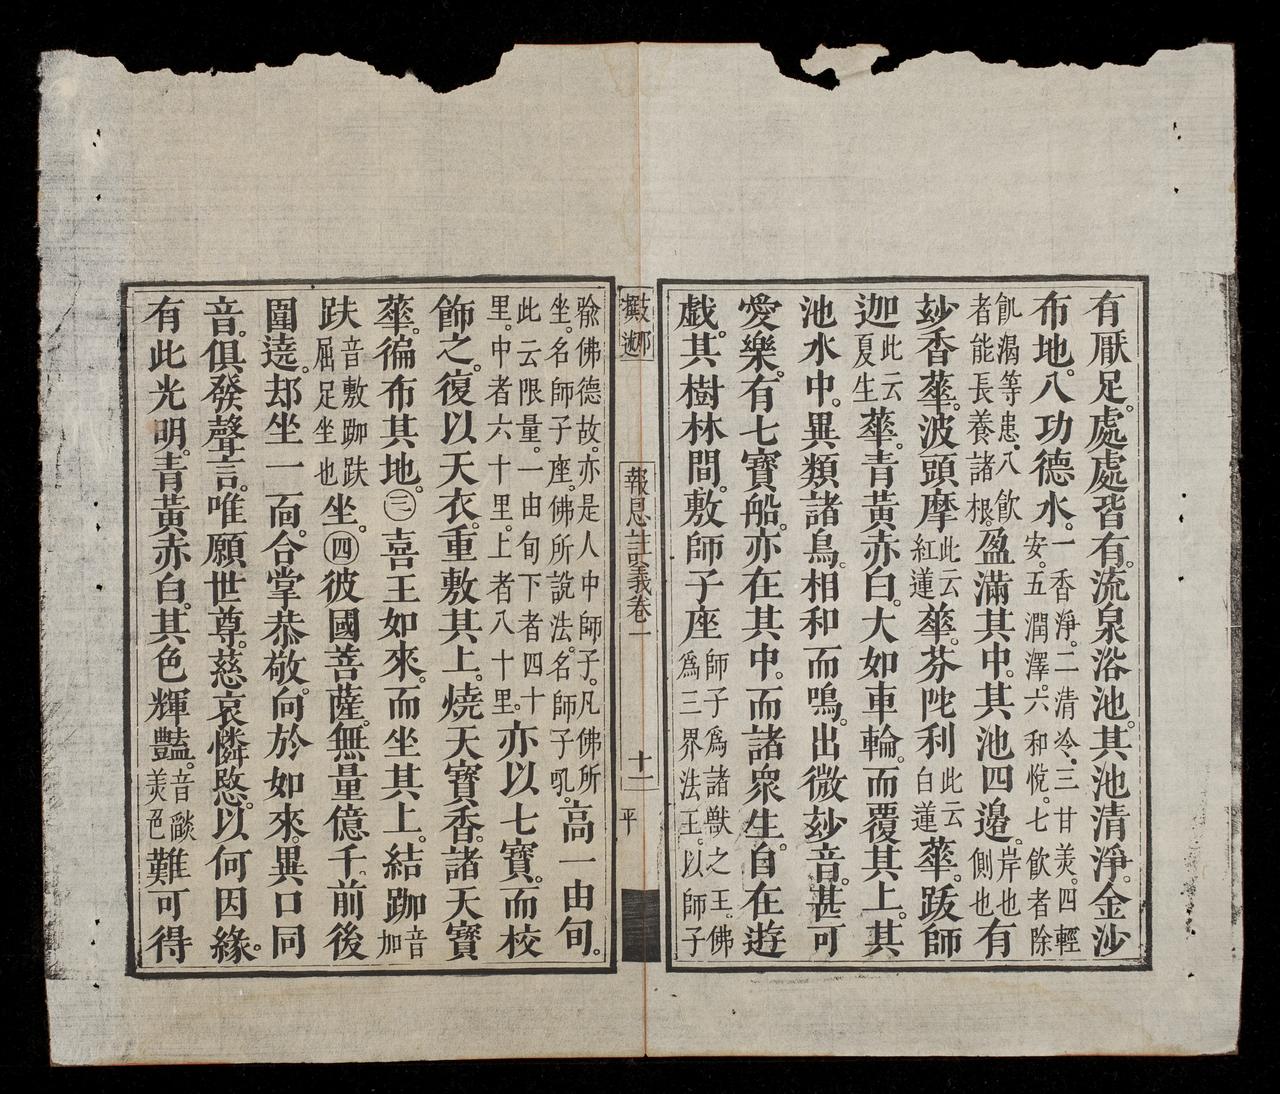 有厭足。處處皆有。流泉浴池。其池清淨。金沙
布地。八功德水。一香淨。二清冷。三甘美。四輕安。五潤澤。六和悅。七飲者除
飢渴等患。八飲者能長養諸根。盈滿其中。其池四邊。岸也側也有
玅香蕐。波頭摩此云紅蓮蕐。芬陀利此云白蓮蕐。跋師
迦此云夏生蕐。青黃赤白。大如車輪。而覆其上。其
池水中。異類諸鳥。相和而鳴。出微玅音。甚可
愛樂。有七寶船。亦在其中。而諸衆生。自在遊
戲。其樹林間。敷師子座師子爲諸獸之王。佛爲三界法王。以師子
報恩註義卷一
十一
平
喻佛德故。亦是人中師子。凡佛所坐。名師子座。佛所說法。名師子吼。高一由旬。
此云限量。一由旬下者四十里。中者六十里。上者八十里。亦以七寶。而校
飾之。復以天衣。重敷其上。燒天寶香。諸天寶
蕐。徧布其地。㊂喜王如來。而坐其上。結跏音加
趺音敷跏趺屈足坐也坐。㊃彼國菩薩。無量億千。前後
圍遶。却坐一面。合掌恭敬。向於如來。異口同
音。俱發聲言。唯願世尊。慈哀憐愍。以何因緣。
有此光明。青黃赤白。其色輝豔。音燄美色難可得